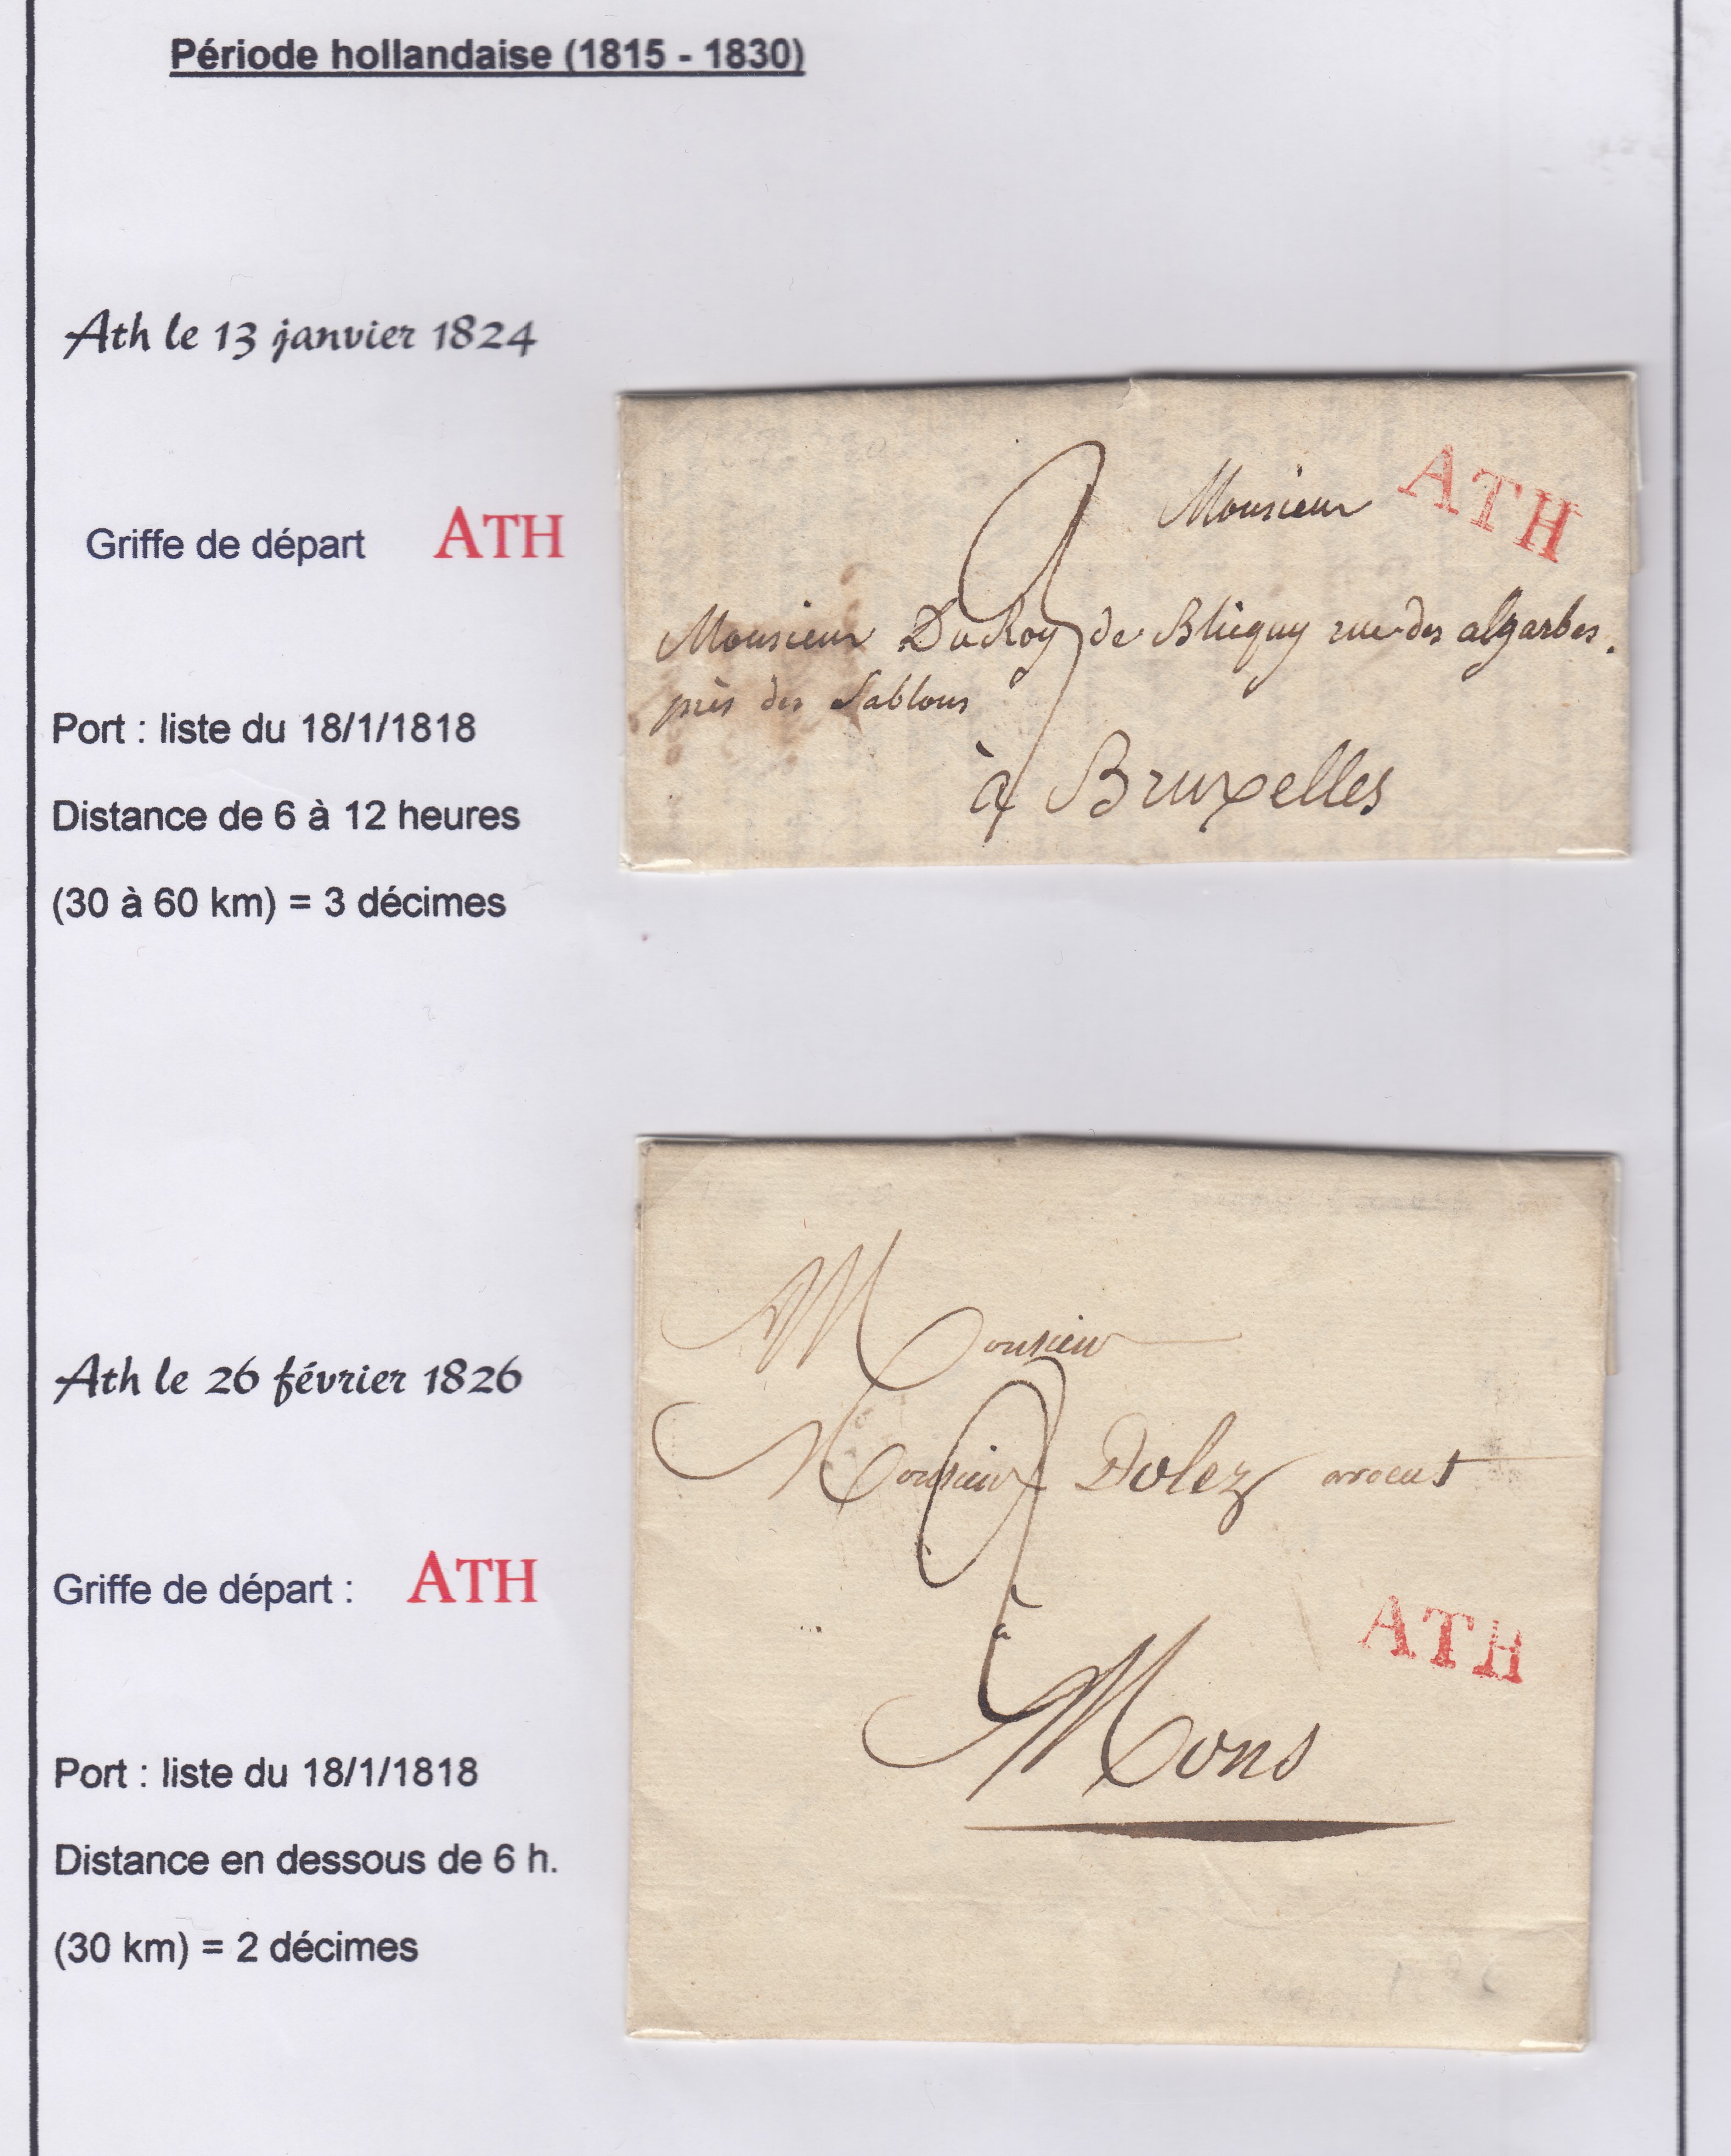 Période hollandaise (1815 - 1830)
Ath le 13 janvier 1824
Griffe de départ ATH
Port : liste du 18/1/1818
Distance de 6 à 12 heures
(30 à 60 km) = 3 décimes
Monsieur
ATH
Monsieur DuRoy de Blicquy rue des algarbes.
près des Sablons
à Bruxelles
Ath le 26 février 1826
Griffe de départ : ATH
Port : liste du 18/1/1818
Distance en dessous de 6 h.
(30 km) = 2 décimes
Monsieur
Monsieur Dolez avocat
2
ATH
à
Mons